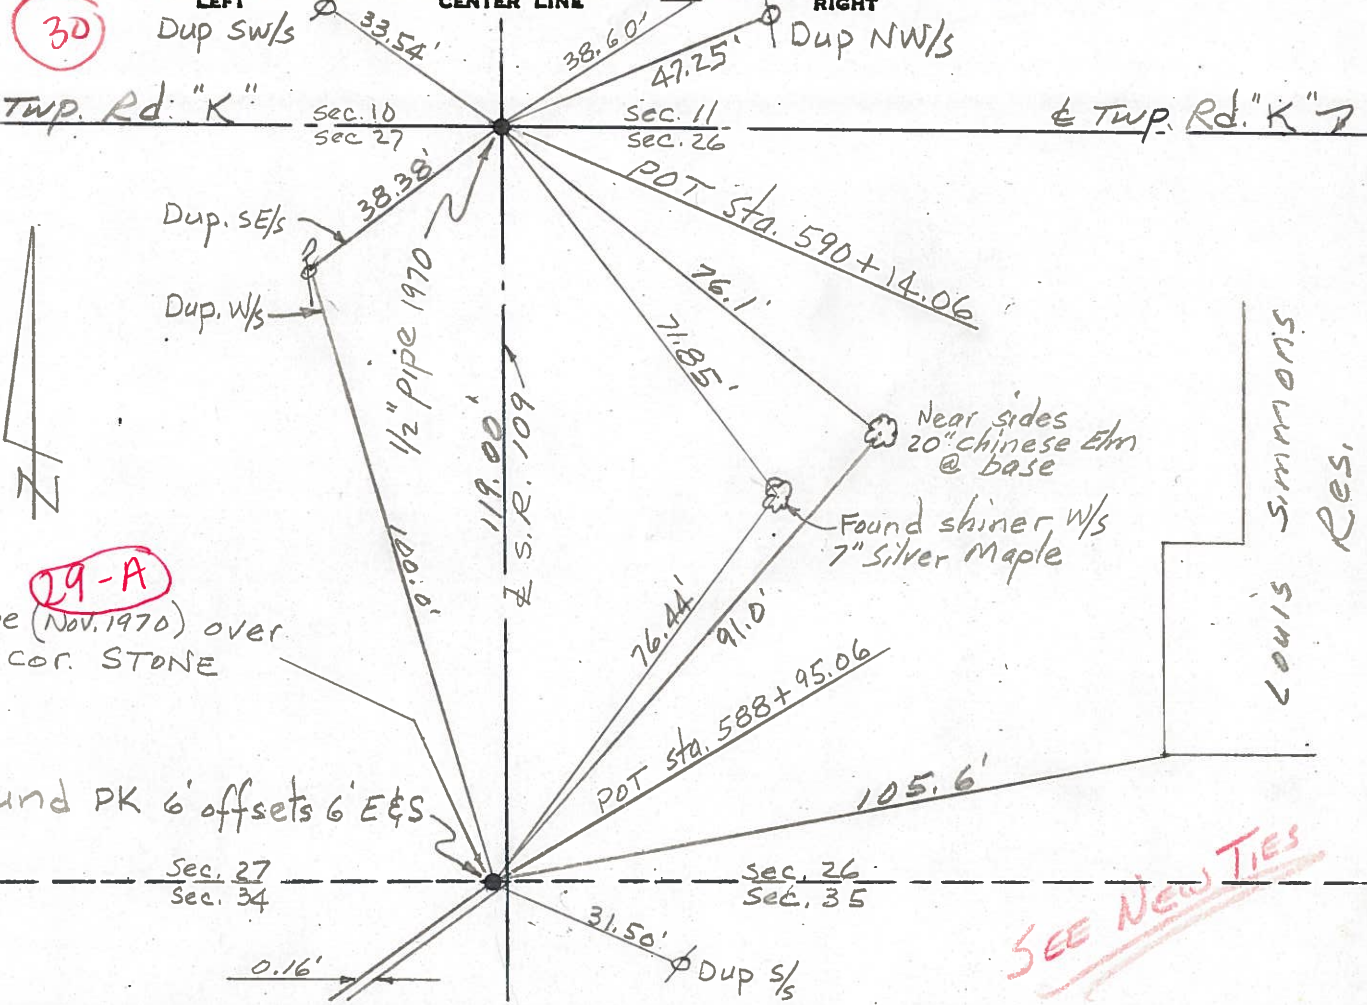 LEFT
CENTER LINE
RIGHT
30
Dup SW/s
33.54'
38.60'
47.25'
Dup NW/s
Twp. Rd. "K"
Sec. 10
Sec 27
Sec. 11
Sec. 26
℄ Twp. Rd. "K"
38.38'
Dup. SE/s
Dup. W/s
1/2" pipe 1970
POT Sta. 590+14.06
76.1'
71.85'
119.00'
℄ S.R. 109
Near sides
20" Chinese Elm
@ base
Found shiner W/s
7" Silver Maple
Louis Simmons
Res.
N
29-A
(Nov. 1970) over
cor. STONE
100.0'
76.44'
91.0'
POT Sta. 588+95.06
105.6'
PK 6' offsets 6' E&S
Sec. 27
Sec. 34
Sec. 26
Sec. 35
31.50'
Dup S/s
0.16'
SEE NEW TIES